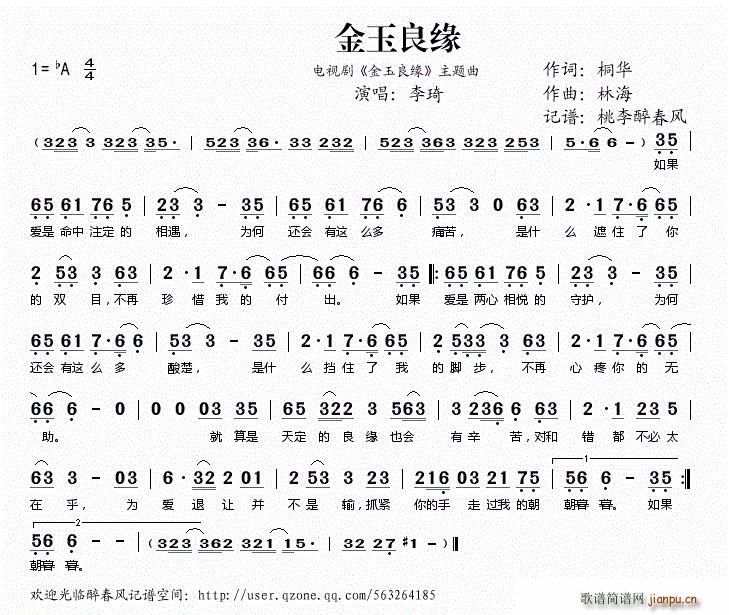 金玉良缘
1=♭A 4/4
电视剧《金玉良缘》主题曲
演唱：李琦
作词：桐华
作曲：林海
记谱：桃李醉春风
(323 3 323 35· | 523 236 33 232 | 523 363 323 253 | 5·6 6 -) 35 |
如果
65 61 76 5 | 23 3 - 35 | 65 61 76 6 | 53 3 0 63 | 2·1 7·6 65 |
爱是 命中 注定 的 相遇， 为何 还会 有这 么多 痛苦， 是什 么 遮 住 了 你
2 53 3 63 | 2·1 7·6 65 | 66 6 - 35 |: 65 61 76 5 | 23 3 - 35 |
的 双 目，不再 珍 惜 我 的 付 出。 如果 爱是 两心 相悦 的 守护， 为何
65 61 7·6 65 | 53 3 - 35 | 2·1 7·6 65 | 2 533 3 63 | 2·1 7·6 65 |
还会 有这 么 多 酸楚， 是什 么 挡 住 了 我 的 脚步， 不再 心 疼 你 的 无
66 6 - 0 | 0 0 03 35 | 65 322 3 563 | 3 236 6 63 | 2·1 235 |
助。 就 算是 天定 的 良 缘 也会 有 辛 苦，对和 错 都 不必 太
63 3 - 03 | 6·32 2 01 | 2 53 3 23 | 216 03 21 75 | 1 56 6 - 35 :|
在 乎， 为 爱 退 让 并 不 是 输，抓紧 你的手 走 过我 的 朝 朝暮 暮。 如果
2 56 6 - - | (323 323 362 232 | 523 236 35· | 32 27 #1 -) ‖
朝暮 暮。
欢迎光临醉春风记谱空间：http://user.qzone.qq.com/563264185
歌谱简谱网 jianpu.cn